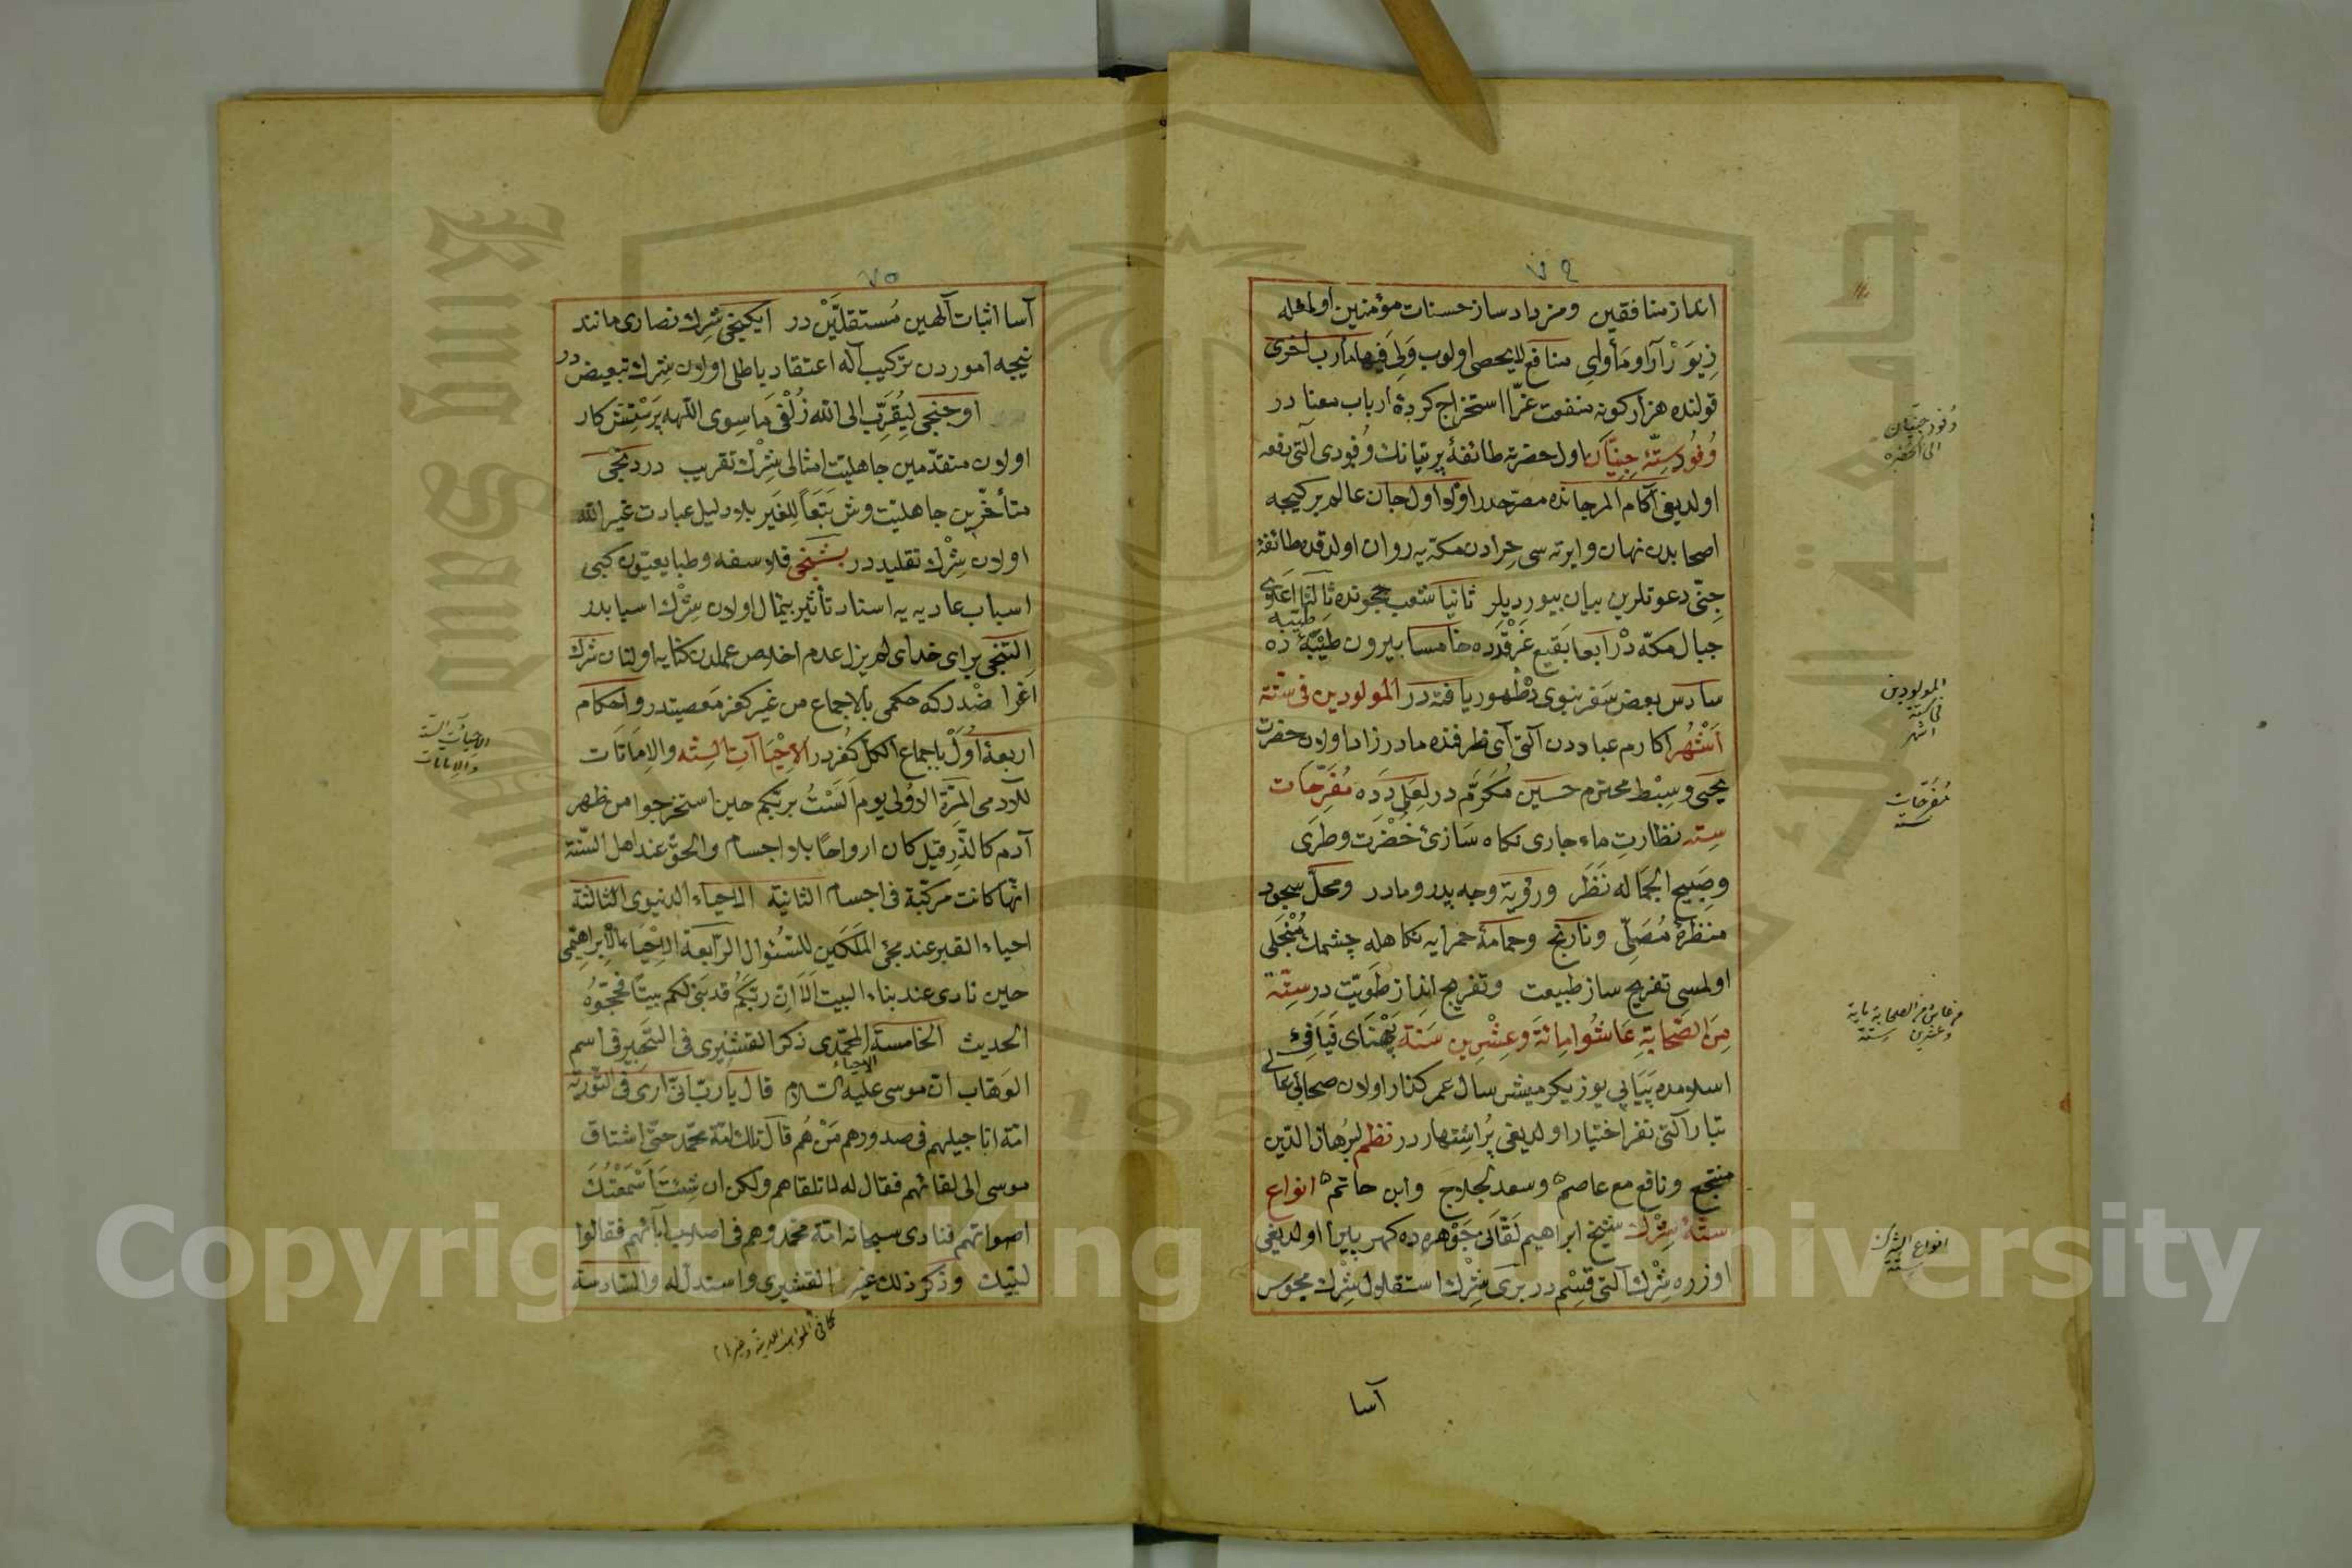 ٧٤
انداز منافقين ومزداد ساز حسنات مؤمنين اولمغله
زِيوَرْ آرا و مَأواىِ منافع لايحصى اولوب وَلِىَ فيها مآرب اخرى
قولنده هزار كونه منفعت غرّا استخراج كردۀ ارباب معنا در
وُفُود ستّۀ جِنِّيَان اول حضرته طائفۀ پريّيانك وُفودى آلتى دفعه
اولديغى آكام المرجانده مصرّحدر اوّلا اول جان عالم بر كيجه
اصحابدن نهان و ايرته سى حرادن مكّه يه روان اولدقده طائفۀ
جنّى دعوتلرين بيان بيورديلر ثانيا شعب حجونده ثالثا اعلاى
جبال مكّه دْ رابعا بقيع غَرْقَدده خامسا بيرون طَيْبَۀ ده
طيبه
سادس بعض سفر نبوى دْ ظهور يافته در المولودين فى ستّة
اَشْهُر اكارم عباددن آلتى آى ظرفنده مادرزاد اولان حضرت
يحيى و سِبْط محترم حسين مُكَرَّم در لَعَلى دَدَه مُفَرِّحَات
سِتّه نظارتِ ماء جارى نكاه سَازئ خُضْرَت و طَرَى
وصَبيح الجَمَاله نَظَر ورؤية وجه پدر و مادر ومحلّ سجود
منظرۀ مُصَلِّى ونارنج وحمامۀ حمرايه نكاهله چشمك مُنْجَلى
اولمسى تفريح ساز طبيعت وتفريج انداز طَوِيّت در ستّة
مِنَ الصَّحَابَةِ عَاشُوا مِائَةَ وَعِشْرِين سَنَة پَهْنَاى فَيَافِئ
اسلامده پَيَاپى يوز يكرميشر سال عمر كذار اولان صحابئ عالى
تبار آلتى نفر اختيار اولديغى پُر اشتهار در نظم لبرهان الدّين
منتجع ونافع مع عاصم وسعد لجلاج وابن حاتم انواع
ستّۀ شِرْك شيخ ابراهيم لَقّانى جَوْهره ده كهر پاش اولديغى
اوزره شِرْك آلتى قسْم در برى شِرْك استقلال شِرْك مجوس
آسا
وفود جنّيان
الى الحضرة
المولودين
فى ستة
اشهر
مُفَرِّحات
ستة
من عاش من الصحابة ماية
وعشرين سنة
انواع الشرك
ستة
٧٥
آسا اثبات آلهين مُستقلَّيْن در ايكنجى شِرك نصارى مانند
نيجه اموردن تركيب اله اعتقاد باطلى اولان شِرك تبعيض در
اوجنجى لِيُقَرِّب الى الله زُلْفَى مَا سِوى اللّهه پَرَستِش كار
اولان متقدّمين جاهليّت امثالى شِرْك تقريب در دردنجى
متأخّرين جاهليّت وش تَبَعًا لِلغَير بلا دليل عبادت غير الله
اولان شِرْك تقليد در بشنجى فلاسفه و طبايعيّون كبى
اسباب عاديه يه اسناد تأثير بيتمال اولان شِرْك اسبابدر
التنجى براى خداى لم يزل عدم اخلاص عملدن كنايه اولنان شرك
اغراضْدر كه حكمى بالاجماع من غير كفر مَعصيتدر واحكام
اربعۀ اُوَلْ باجماع الكلّ كُفر در الاِحْيَاآت السِّتّه والاِمَاتَات
للآدمى المرّة الاُولى يوم اَلَسْتُ بربّكم حين استخرجوا من ظهر
آدم كالذّر قيل كان ارواحًا بلا اجسام والحقّ عند اهل السّنّة
انّها كانت مركّبة فى اجسام الثانية الاحياء الدنيوى الثالثة
احياء القبر عند مجئ المَلَكَين للسّئوال الرّابعة الاِحْيَاء الاِبراهيمى
حين نادى عند بناء البيت اَلَا اِنّ ربّكم قد بَنَى لكم بيتًا فحجّوهُ
الحديث الخامسة المحمّدى ذكر القشيرى فى التّحبير فى اسم
الاحياء
الوهّاب انّ موسى عليه السّلام قال يا ربّ انّى ارى فى التّورية
امّة اناجيلهم فى صدورهم مَنْ هُم قال تلك امّة محمّد حتّى اشتاق
موسى الى لقائهم فقال له لا تلقاهم ولكن ان شِئتَ اَسْمَعْتُكَ
اصواتهم فنادى سبحانه امّة محمّد وهم فى اصلاب آبائهم فقالوا
لبّيك وذكر ذلك غير القشيرى واستدلّ له والسّادسة
كما فى المواهب اللدنية وغيرها
الاحياآت الستة
والاماتات
Copyright © King Saud University
King Saud University
جامعة الملك سعود
1957